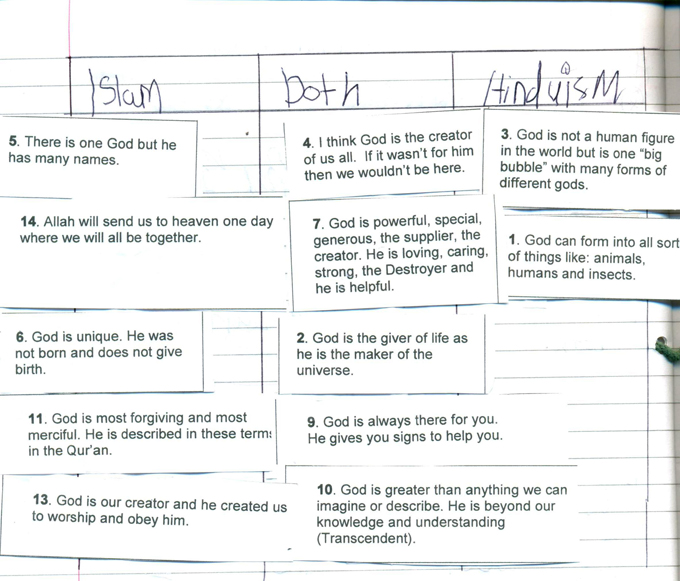 Islam
Both
Hinduism
5. There is one God but he
has many names.
4. I think God is the creator
of us all. If it wasn't for him
then we wouldn't be here.
3. God is not a human figure
in the world but is one "big
bubble" with many forms of
different gods.
14. Allah will send us to heaven one day
where we will all be together.
7. God is powerful, special,
generous, the supplier, the
creator. He is loving, caring,
strong, the Destroyer and
he is helpful.
1. God can form into all sort
of things like: animals,
humans and insects.
6. God is unique. He was
not born and does not give
birth.
2. God is the giver of life as
he is the maker of the
universe.
11. God is most forgiving and most
merciful. He is described in these terms
in the Qur'an.
9. God is always there for you.
He gives you signs to help you.
13. God is our creator and he created us
to worship and obey him.
10. God is greater than anything we can
imagine or describe. He is beyond our
knowledge and understanding
(Transcendent).